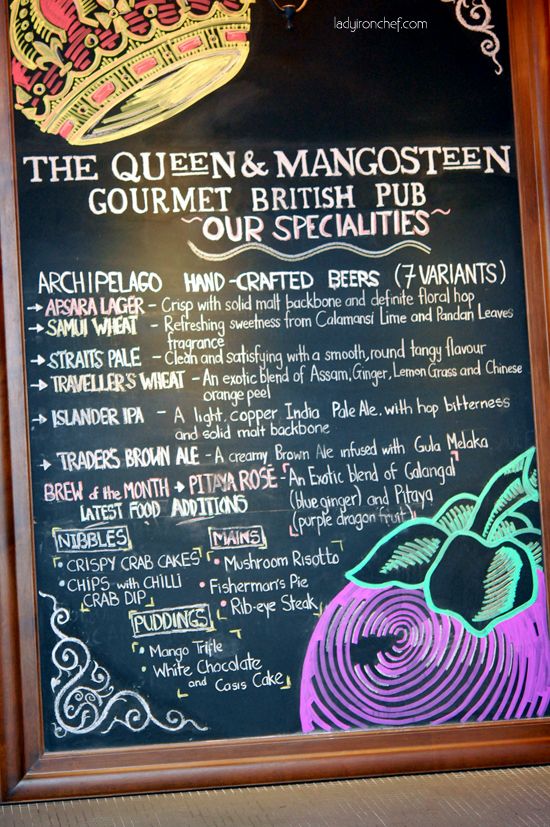 ladyironchef.com
THE QUEEN & MANGOSTEEN
GOURMET BRITISH PUB
~OUR SPECIALITIES~
ARCHIPELAGO HAND-CRAFTED BEERS (7 VARIANTS)
→ APSARA LAGER - Crisp with solid malt backbone and definite floral hop
→ SAMUI WHEAT - Refreshing sweetness from Calamansi Lime and Pandan Leaves
fragrance
→ STRAITS PALE - Clean and satisfying with a smooth, round tangy flavour
→ TRAVELLER'S WHEAT - An exotic blend of Assam, Ginger, Lemon Grass and Chinese
orange peel
→ ISLANDER IPA - A light, copper India Pale Ale, with hop bitterness
and solid malt backbone
→ TRADER'S BROWN ALE - A creamy Brown Ale infused with Gula Melaka
BREW of the MONTH → PITAYA ROSE - An Exotic blend of Galangal
(blue ginger) and Pitaya
(purple dragon fruit)
LATEST FOOD ADDITIONS
NIBBLES
• CRISPY CRAB CAKES
• CHIPS with CHILLI
CRAB DIP
MAINS
• Mushroom Risotto
• Fisherman's Pie
• Rib-eye Steak
PUDDINGS
• Mango Trifle
• White Chocolate
and Casis Cake